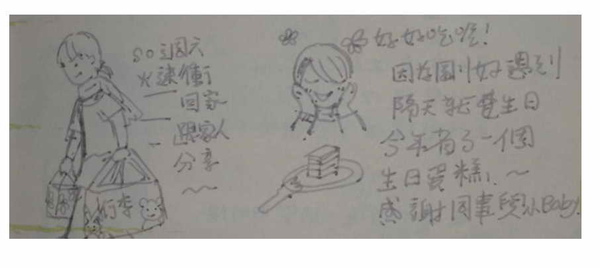 so週六
火速衝
回家
跟家人
分享
行李
好好吃喔!
因為剛好遇到
隔天就是生日
今年有了一個
生日蛋糕!
感謝同事與小Baby!